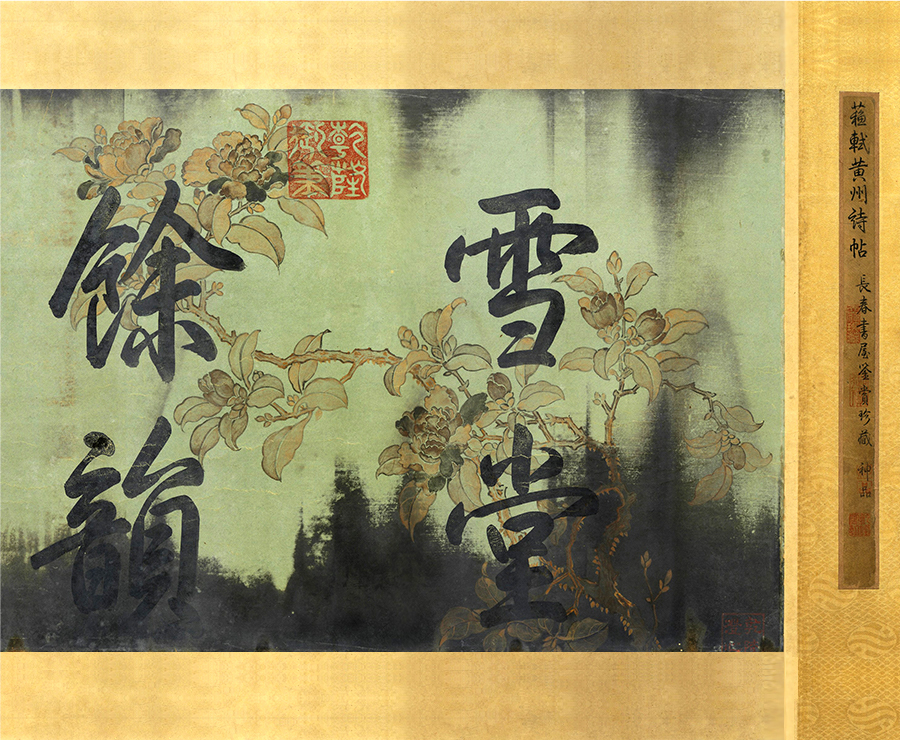 蘇軾黄州詩帖
長春書屋鑒賞珍藏 神品
雪堂
餘韻
乾隆
御筆